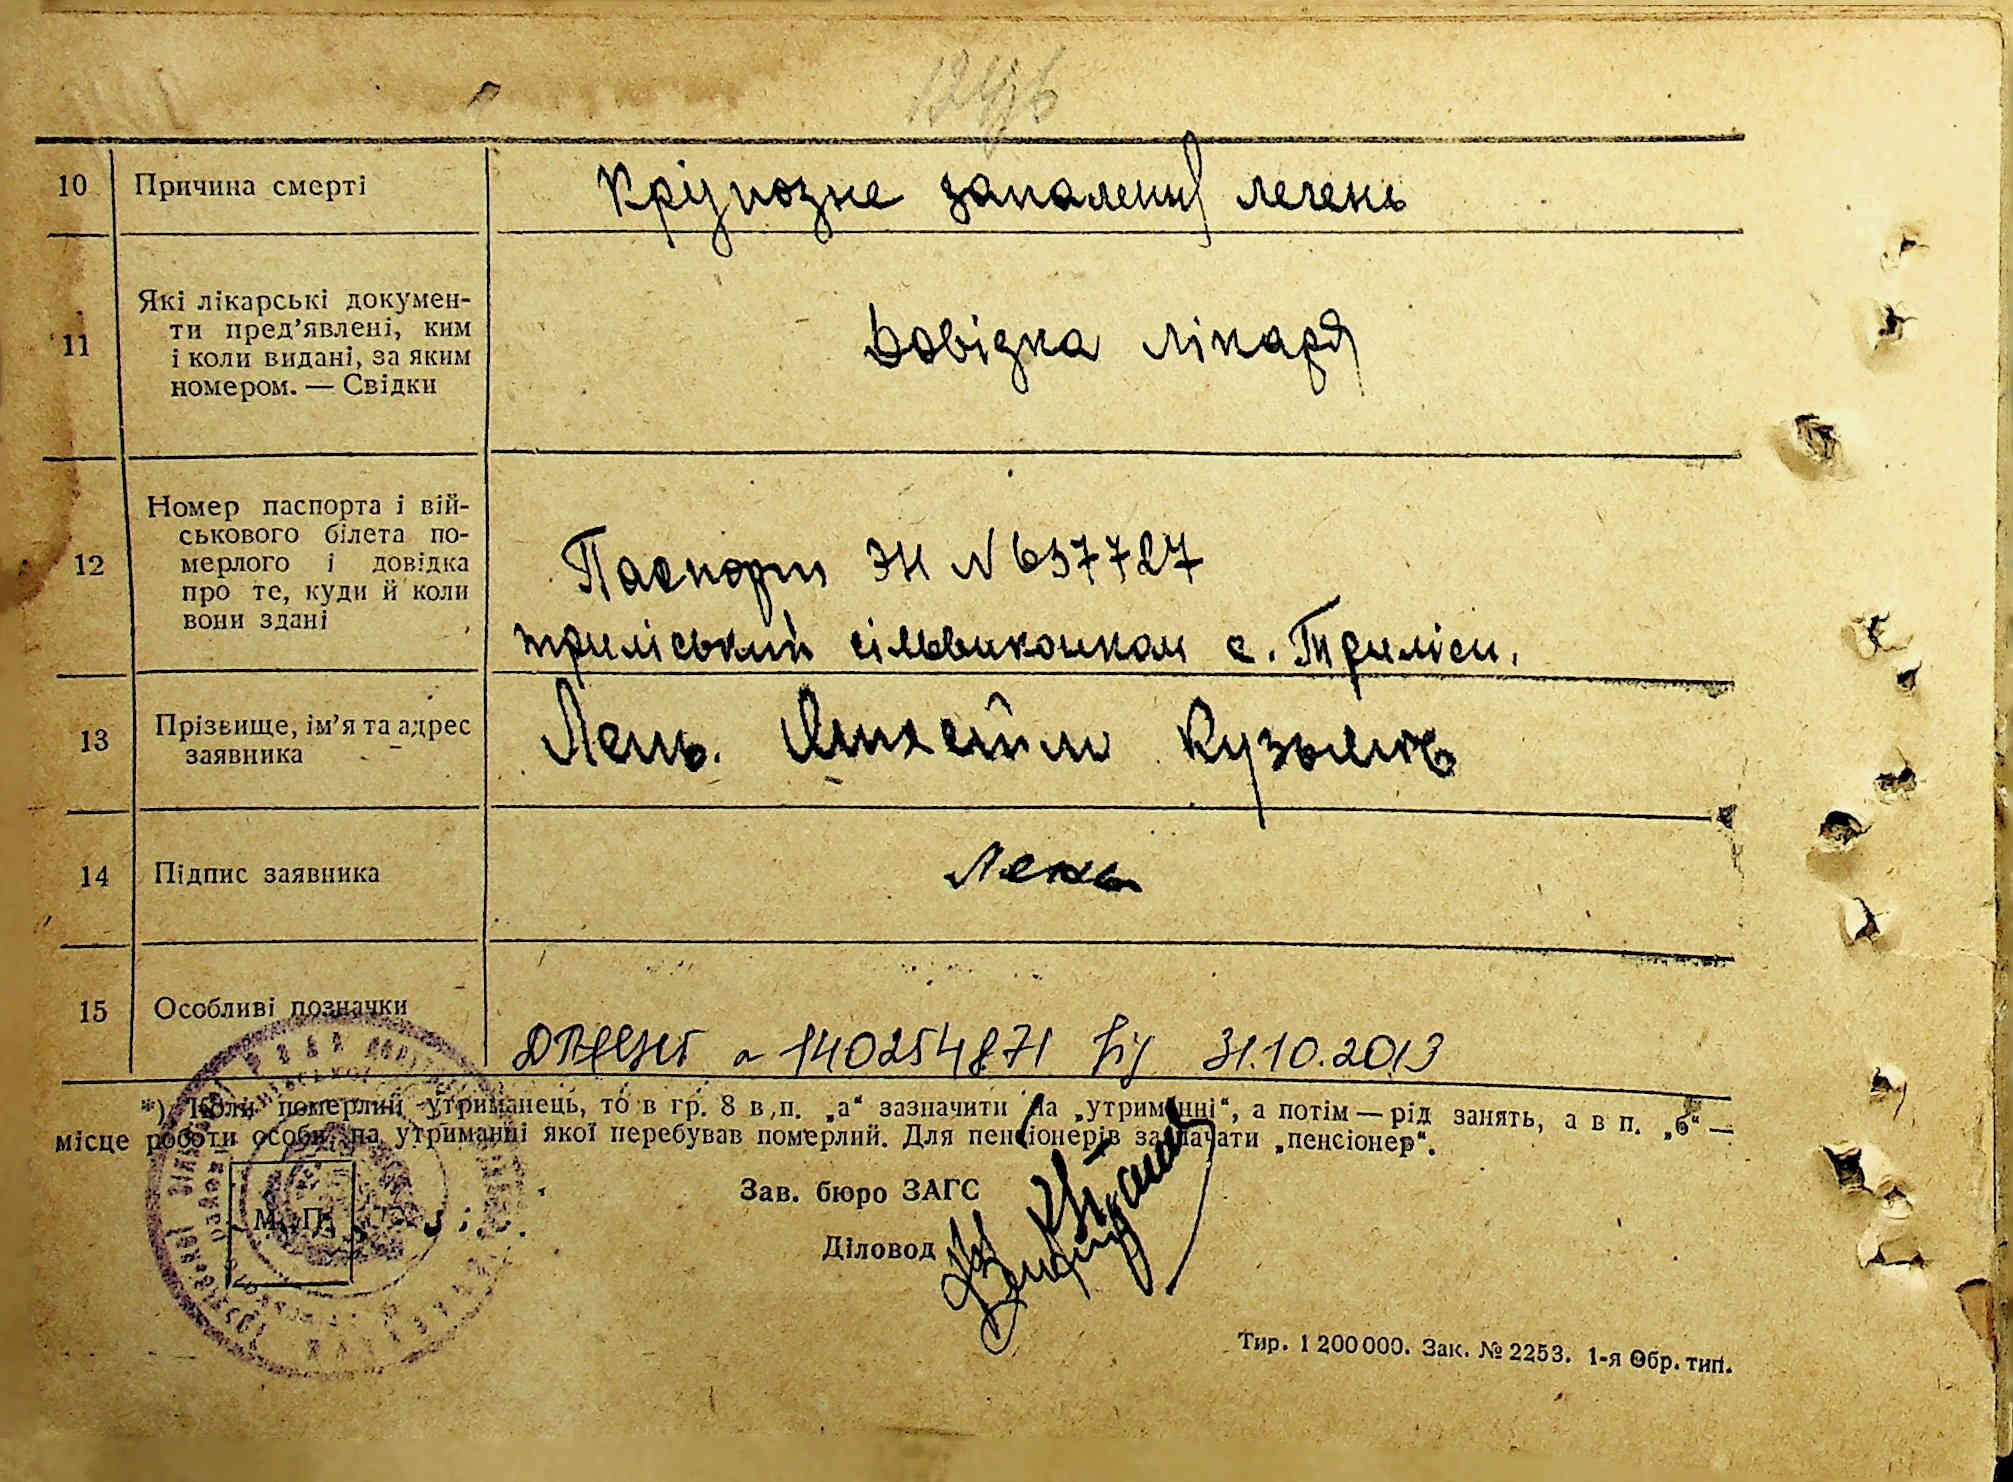 10 Причина смерті Крупозне запалення легень
11 Які лікарські докумен-
ти пред’явлені, ким
і коли видані, за яким
номером. — Свідки
Довідка лікаря
12 Номер паспорта і вій-
ськового білета по-
мерлого і довідка
про те, куди й коли
вони здані
Паспорт ЭН № 637727
триліський сільвиконком с. Триліси.
13 Прізвище, ім’я та адрес
заявника
Лень. Михайло Кузьмов
14 Підпис заявника Лень
15 Особливі позначки
140254871 31.10.2013
*) Коли померлий утриманець, то в гр. 8 в п. „а“ зазначити на „утриманні“, а потім — рід занять, а в п. „б“ —
місце роботи особи, на утриманні якої перебував померлий. Для пенсіонерів зазначати „пенсіонер“.
М. П.
Зав. бюро ЗАГС
Діловод
Тир. 1 200 000. Зак. № 2253. 1-я Обр. тип.